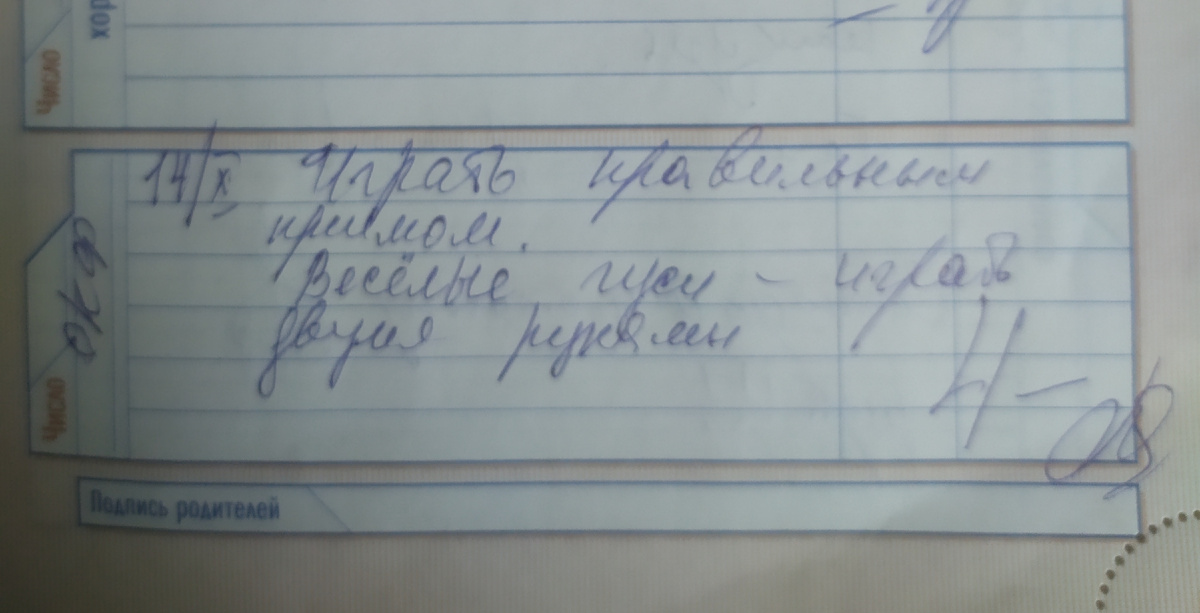 хор
Число
14/X Играть правильным
приёмом.
Весёлые гуси - играть
двумя руками
4-
ОКФ
Число
Подпись родителей